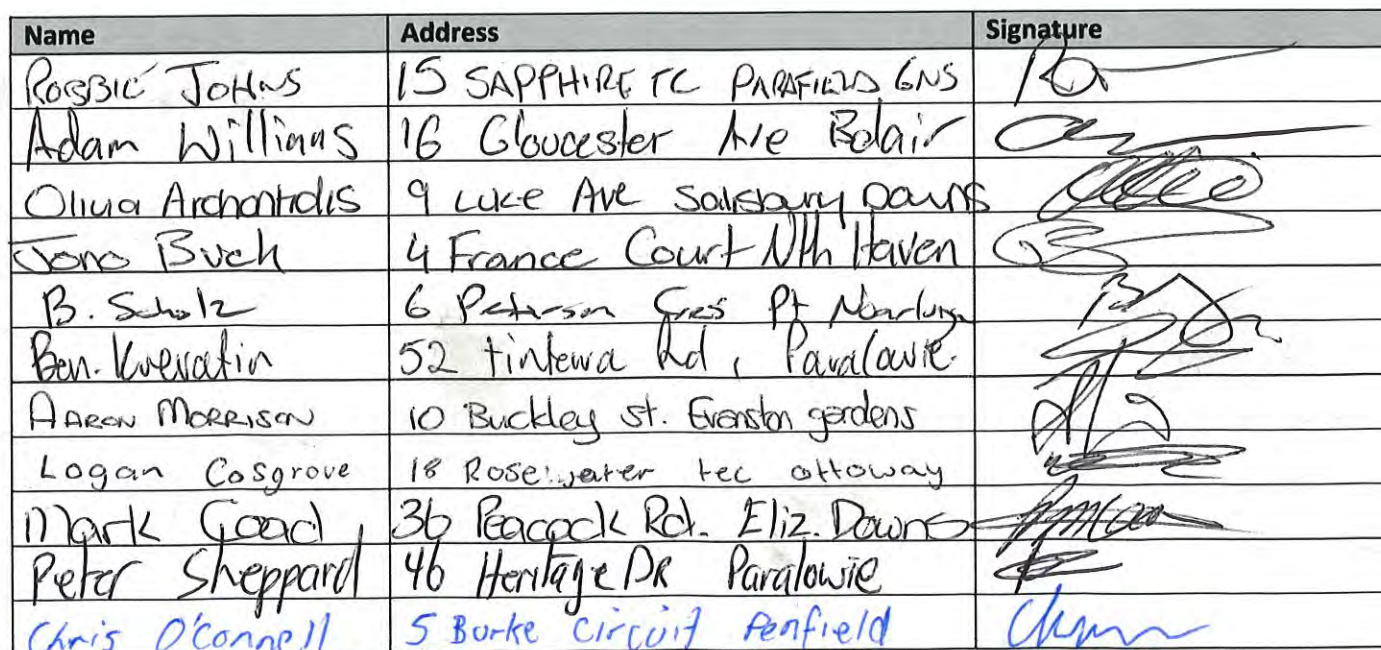 Name Address Signature
ROBBIE JOHNS 15 SAPPHIRE TC PARAFIELD GNS
Adam Williams 16 Gloucester Ave Belair
Olivia Archontidis 9 Luke Ave Salisbury Downs
Jono Buch 4 France Court Nth Haven
B. Scholz 6 Peterson Cres Pt Noarlunga
Ben. 52 Rd, Paralowie.
AARON MORRISON 10 Buckley St. Evanston gardens
Logan Cosgrove 18 Rosewater tec ottoway
Mark Goad 36 Peacock Rd. Eliz. Downs
Peter Sheppard 46 Heritage DR Paralowie
Chris O'Connell 5 Burke Circuit Penfield